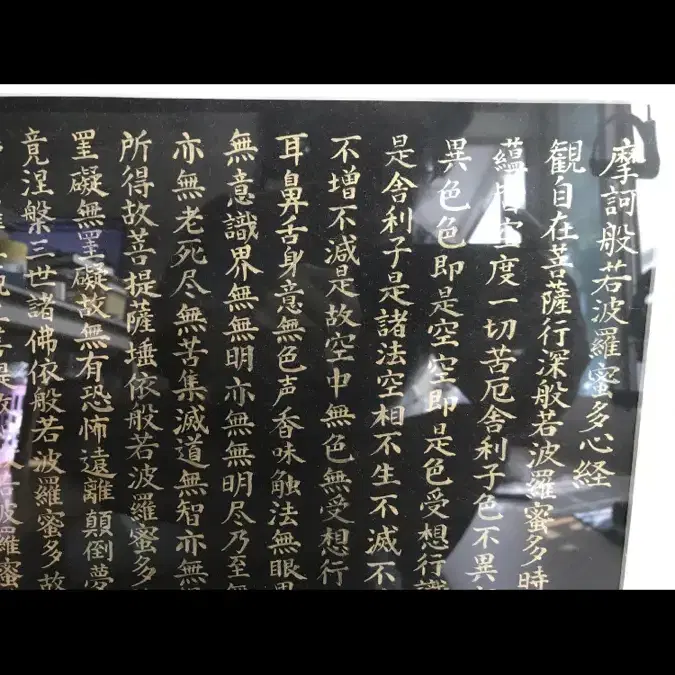 摩訶般若波羅蜜多心経
観自在菩薩行深般若波羅蜜多時
蘊皆空度一切苦厄舎利子色不異
異色色即是空空即是色受想行識
是舎利子是諸法空相不生不滅不
不増不減是故空中無色無受想行
耳鼻舌身意無色声香味触法無眼界
無意識界無無明亦無無明尽乃至無
亦無老死尽無苦集滅道無智亦無
所得故菩提薩埵依般若波羅蜜多
罣礙無罣礙故無有恐怖遠離顛倒夢
竟涅槃三世諸佛依般若波羅蜜多故
若波羅蜜